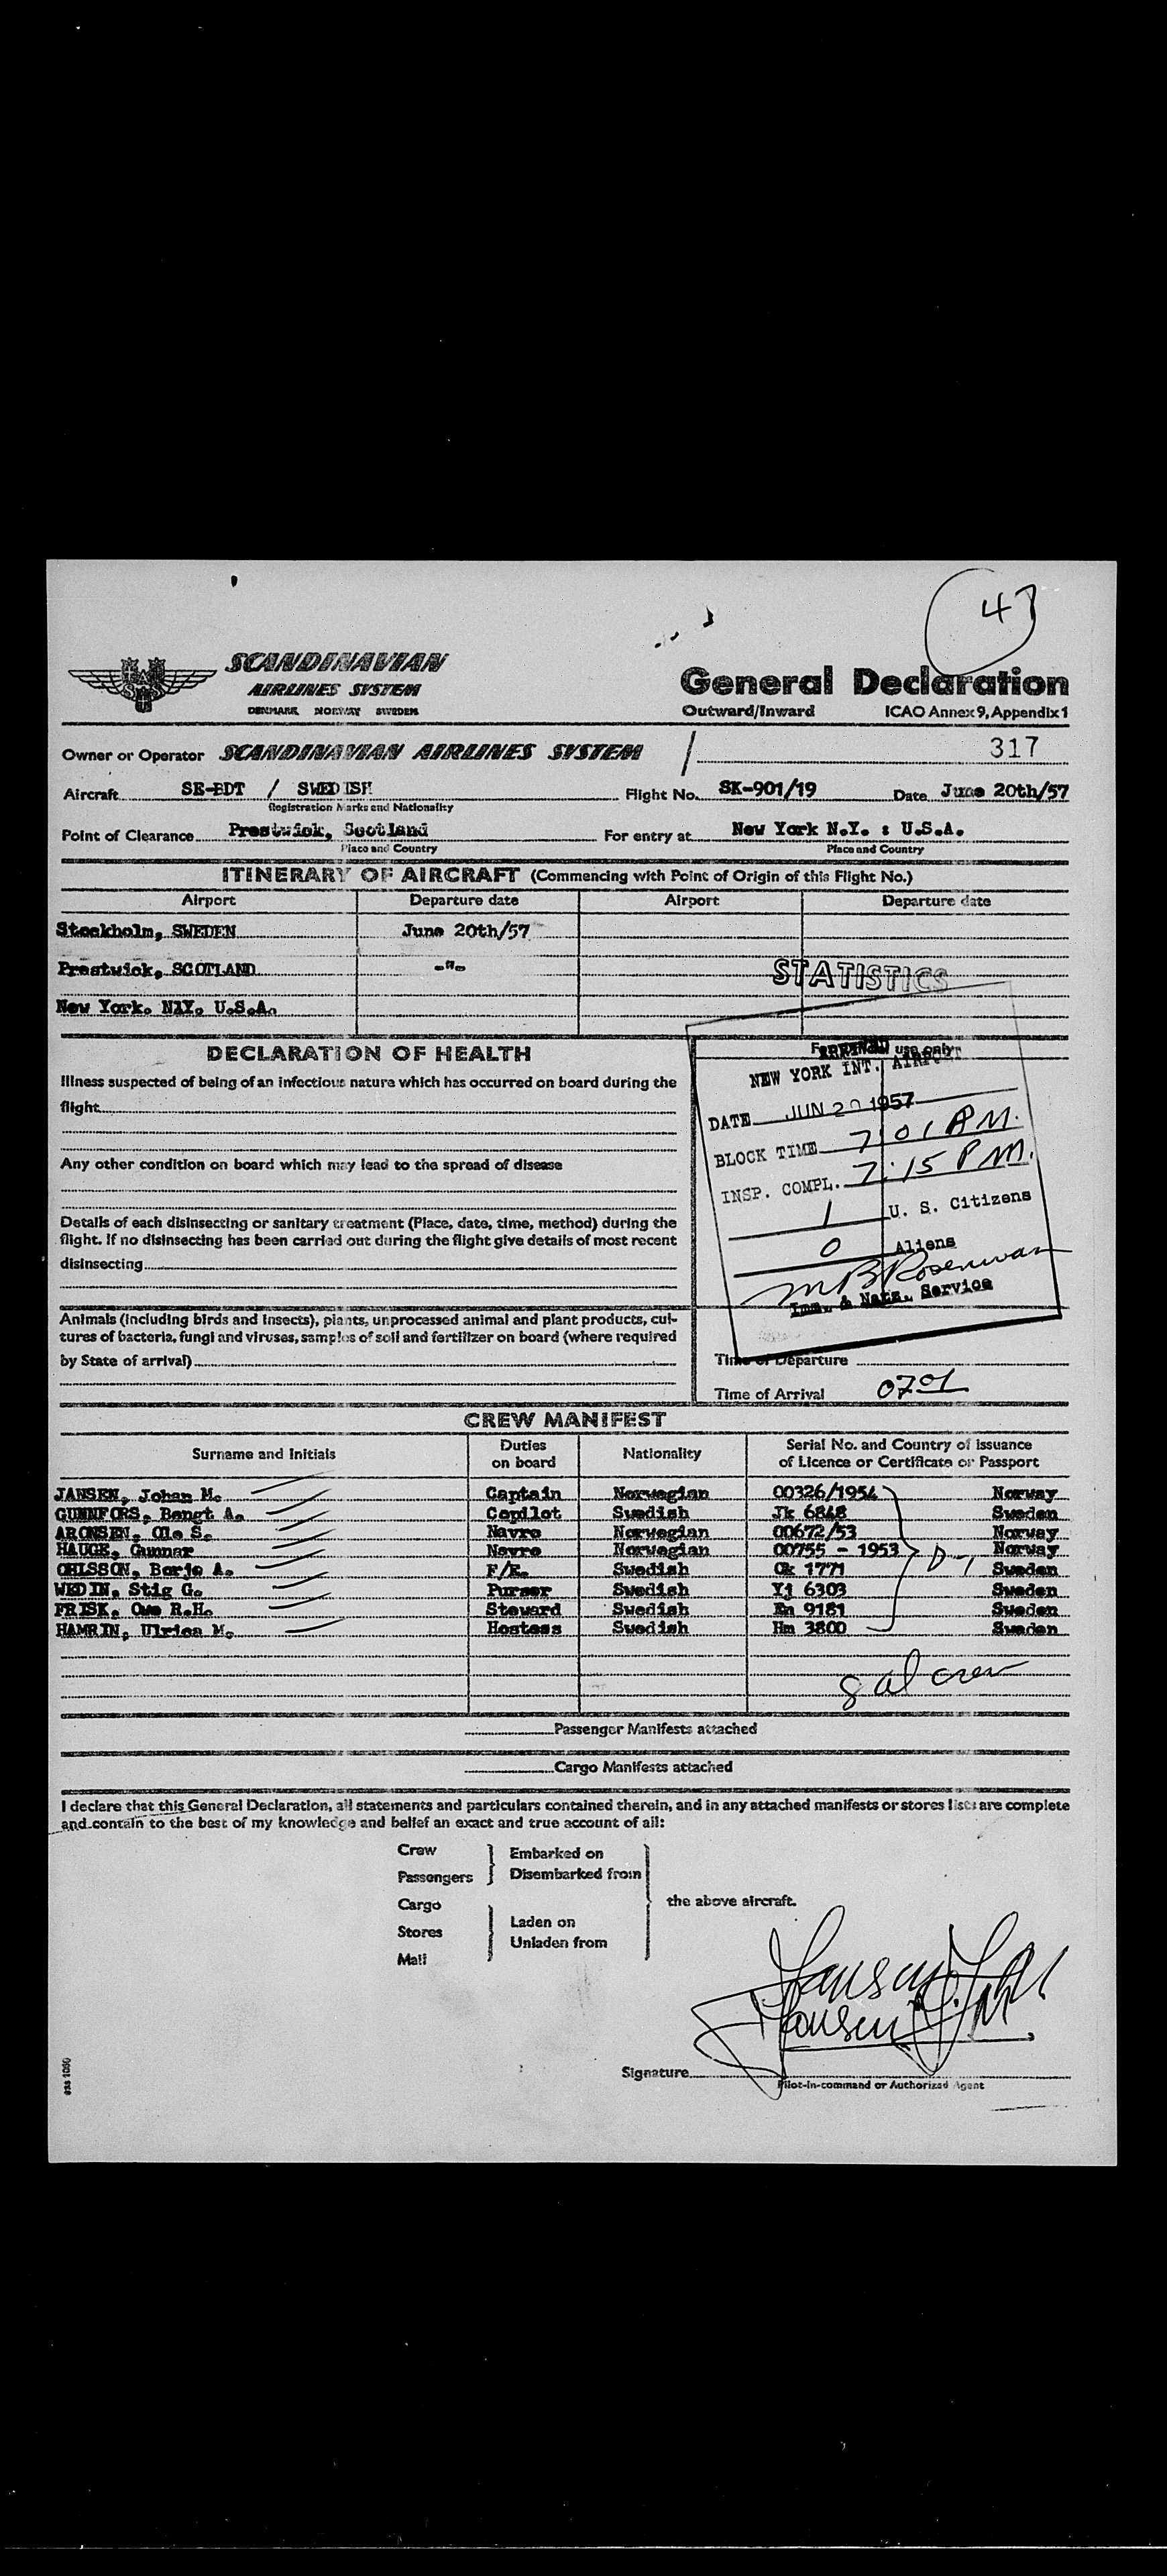 43
SCANDINAVIAN
AIRLINES SYSTEM
DENMARK NORWAY SWEDEN
General Declaration
Outward/Inward ICAO Annex 9, Appendix 1
Owner or Operator SCANDINAVIAN AIRLINES SYSTEM / 317
Aircraft SE-BDT / SWEDISH Flight No. SK-901/19 Date June 20th/57
Registration Marks and Nationality
Point of Clearance Prestwick, Scotland For entry at New York N.Y. : U.S.A.
Place and Country Place and Country
ITINERARY OF AIRCRAFT (Commencing with Point of Origin of this Flight No.)
Airport Departure date Airport Departure date
Stockholm, SWEDEN June 20th/57
Prestwick, SCOTLAND -"-
STATISTICS
New York. N.Y. U.S.A.
DECLARATION OF HEALTH
Illness suspected of being of an infectious nature which has occurred on board during the
flight
Any other condition on board which may lead to the spread of disease
Details of each disinsecting or sanitary treatment (Place, date, time, method) during the
flight. If no disinsecting has been carried out during the flight give details of most recent
disinsecting
Animals (including birds and insects), plants, unprocessed animal and plant products, cul-
tures of bacteria, fungi and viruses, samples of soil and fertilizer on board (where required
by State of arrival)
use only
ARRIVED
NEW YORK INT. AIRPORT
DATE JUN 20 1957
BLOCK TIME 7:01 PM.
INSP. COMPL. 7:15 PM.
1 U. S. Citizens
0 Aliens
Imm. & Natz. Service
Time of Departure
Time of Arrival 0701
CREW MANIFEST
Surname and Initials Duties on board Nationality Serial No. and Country of issuance of Licence or Certificate or Passport
JANSEN, Johan M. Captain Norwegian 00326/1954 Norway
GUNNFORS, Bengt A. Copilot Swedish Jk 6848 Sweden
ARONSEN, Ole S. Navro Norwegian 00672/53 Norway
HAUGE, Gunnar Navro Norwegian 00755 - 1953 D-1 Norway
OHLSSON, Borje A. F/E. Swedish Ok 1771 Sweden
WEDIN, Stig G. Purser Swedish Yj 6303 Sweden
FRISK, Owe R.H. Steward Swedish En 9181 Sweden
HAMRIN, Ulrica M. Hostess Swedish Hm 3800 Sweden
8 al crew
Passenger Manifests attached
Cargo Manifests attached
I declare that this General Declaration, all statements and particulars contained therein, and in any attached manifests or stores lists are complete
and contain to the best of my knowledge and belief an exact and true account of all:
Crew
Passengers
Embarked on
Disembarked from
Cargo
Stores
Mail
Laden on
Unladen from
the above aircraft.
Jansen
Jansen
Signature
Pilot-in-command or Authorized Agent
sas 1080